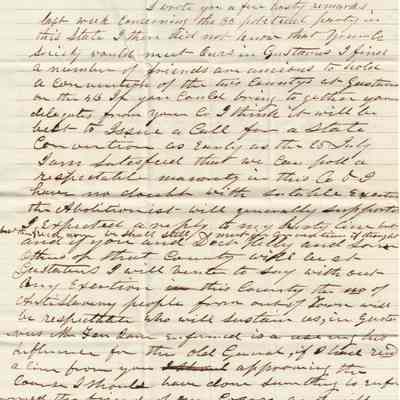 I wrote you a few hasty remarks
last week concerning the 3d political party in
this State I then did not know that Your
Society would meet here in Gustavus I find
a number of friends are anxious to hold
a convention of the two Countys at Gustavus
on the 4th If you could bring to gether your
delegates from your Co I think it will be
best to Issue a Call for a State
Convention as early as the 15 July
I am satisfied that we can poll a
respectable minority in this Co & I
have no doubt with sutable Exertion
the Abolitionist will generally support
I expected a reply to my hasty line but
and if you and Doct Kelly and
others of that County will be at
Gustavus I will venter to say with out
any Exertion in this County the no of
Antislavery people from out of Town will
be respectable who will sustain us, in Gusta
vus Mr Gen am informed is a useing his
influence for the old Guard, if I had recd
a line from you approving the
Course I should have done something to